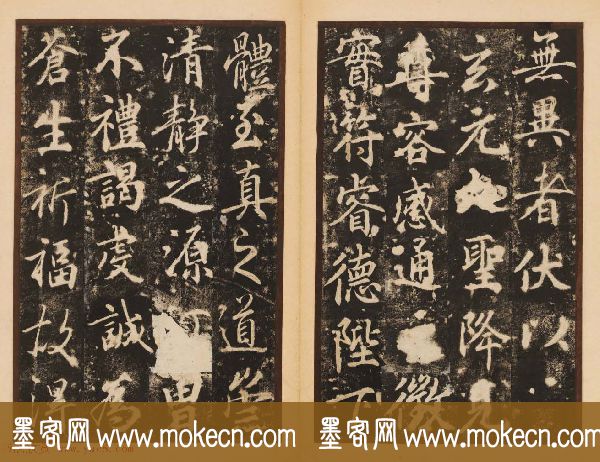 無異者伏以
玄元聖降見
尊容感通徵
實符睿德陛下
體至真之道崇
清靜之源曾
不禮謁虔誠為
蒼生祈福故得
墨客网 www.mokecn.com
墨客网 www.mokecn.com